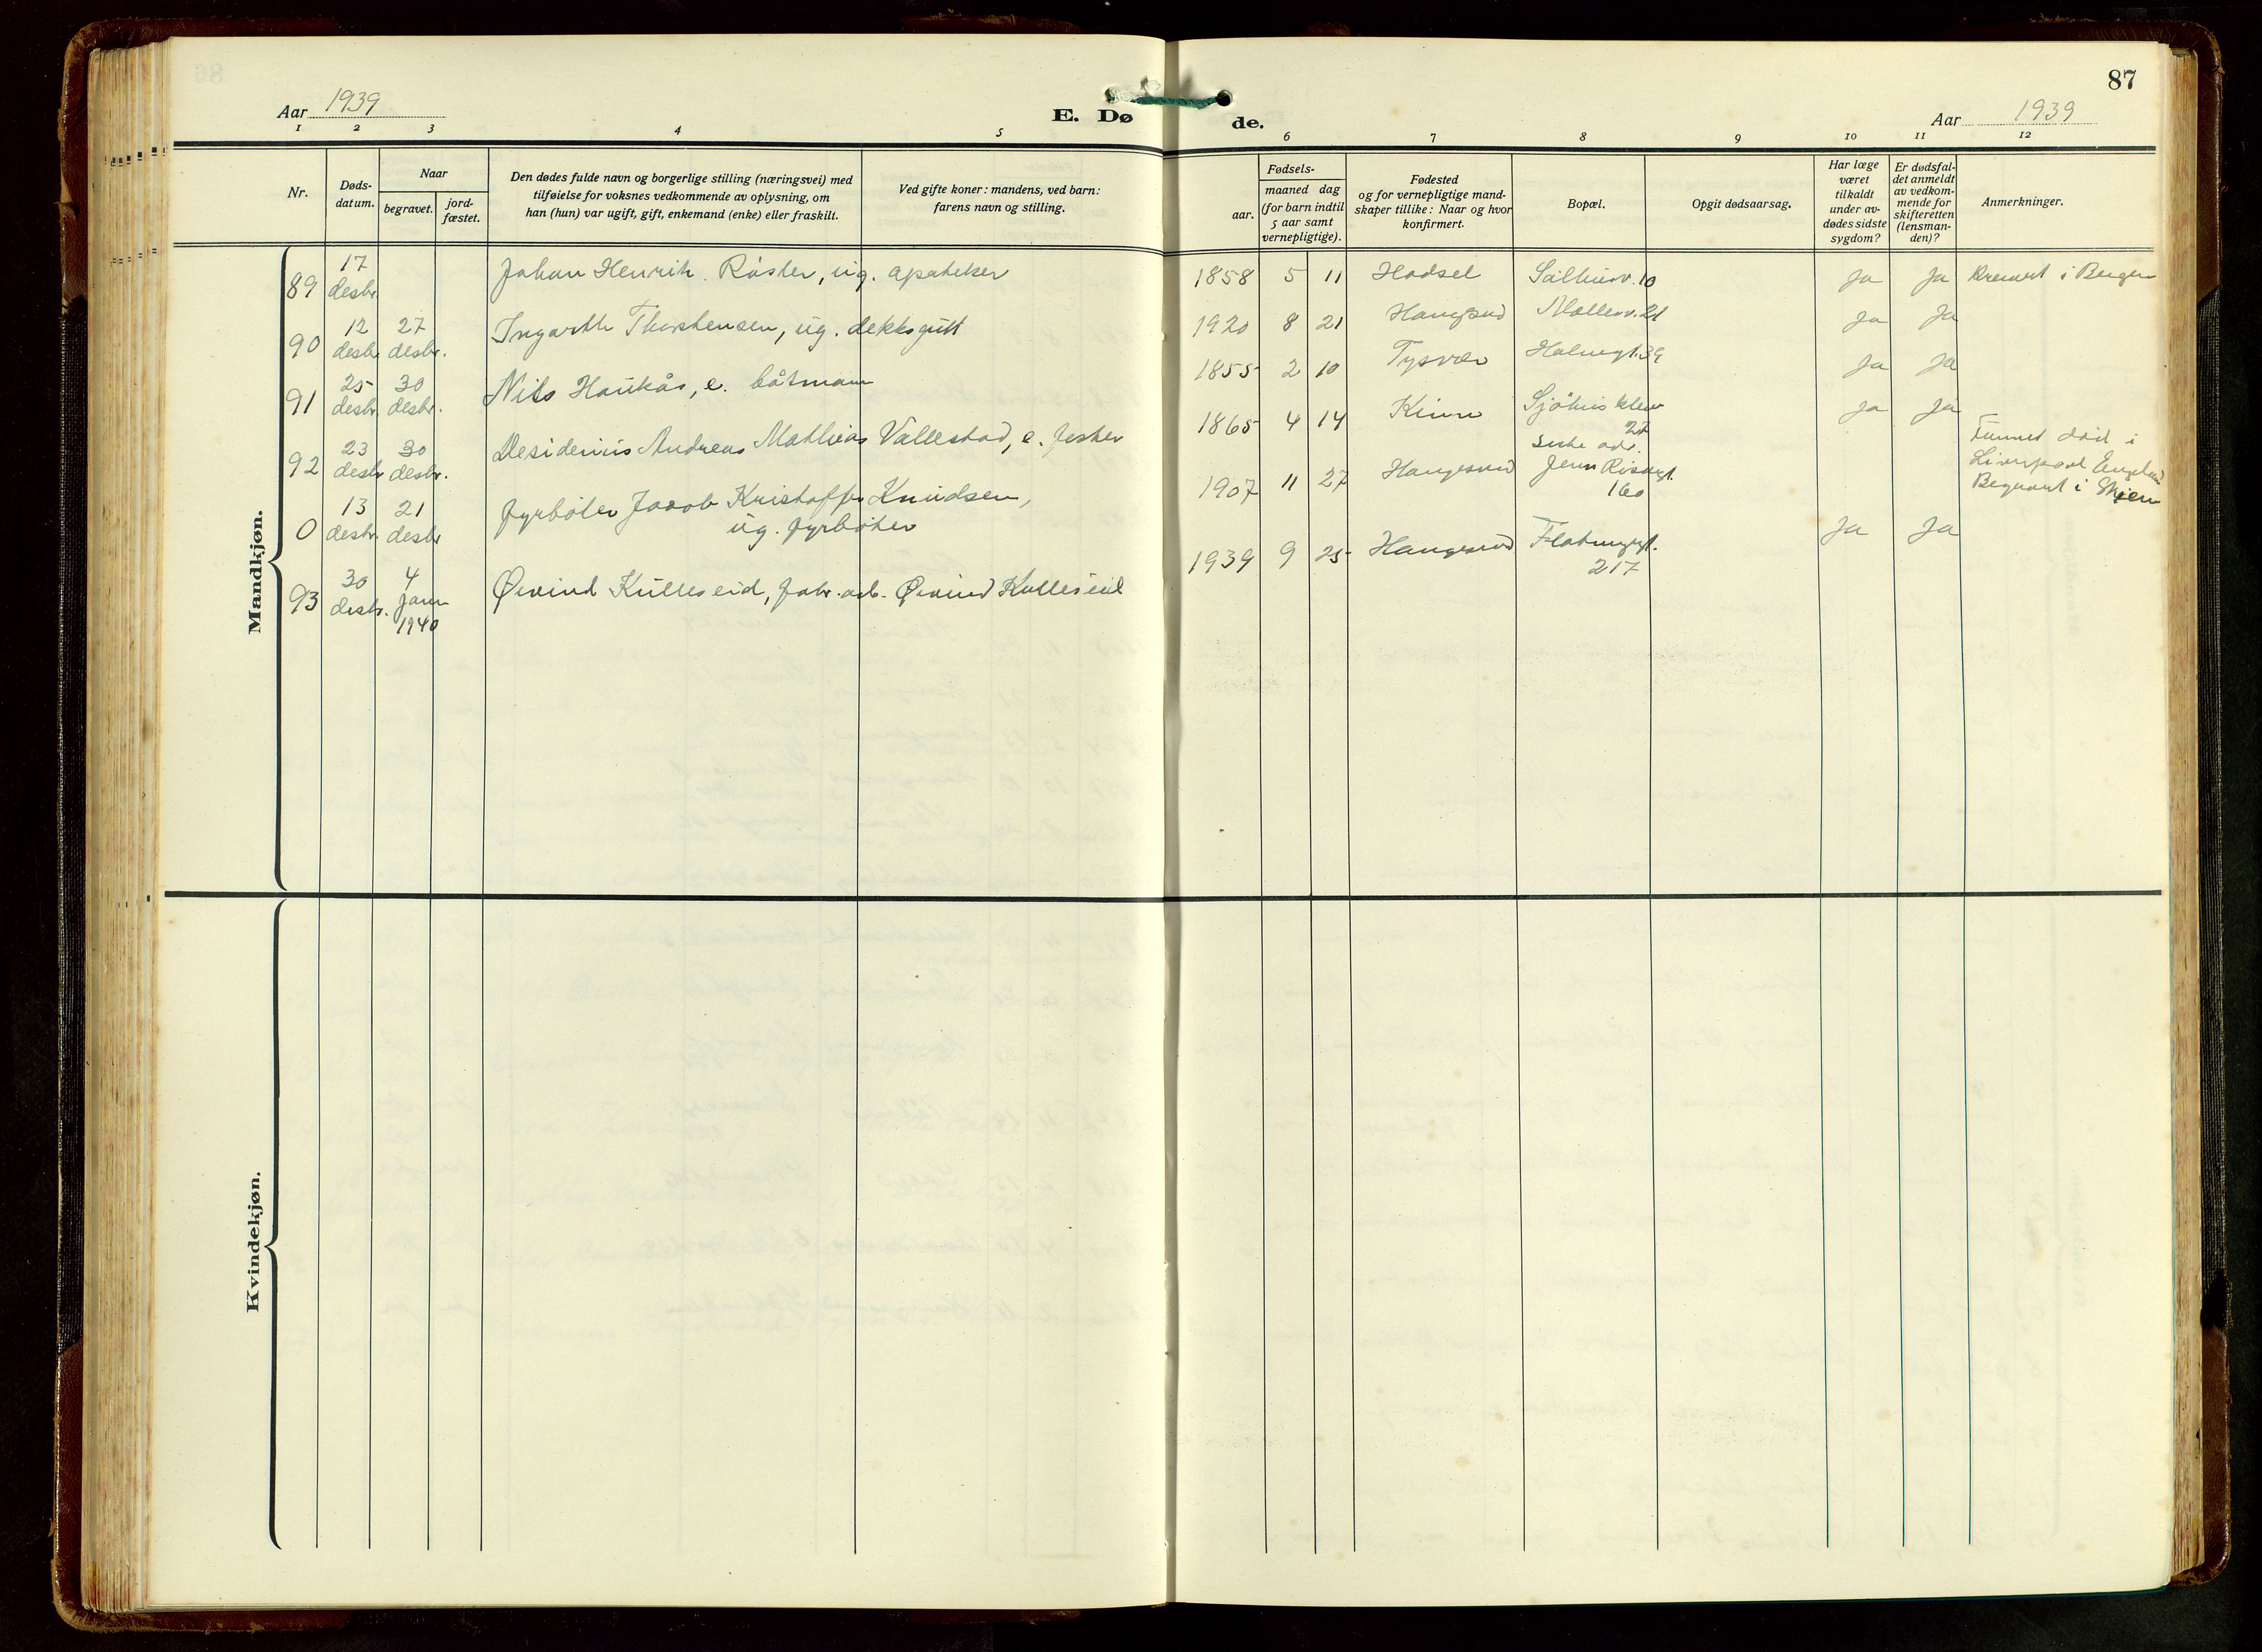 87
Aar 1939
E. Dø
de.
Aar 1939
1 2 3 4 5 6 7 8 9 10 11 12
Nr.
Døds-
datum.
Naar
begravet.
jord-
fæstet.
Den dødes fulde navn og borgerlige stilling (næringsvei) med
tilføielse for voksnes vedkommende av oplysning, om
han (hun) var ugift, gift, enkemand (enke) eller fraskilt.
Ved gifte koner: mandens, ved barn:
farens navn og stilling.
Fødsels-
aar.
maaned dag
(for barn indtil
5 aar samt
vernepligtige).
Fødested
og for vernepligtige mand-
skaper tillike: Naar og hvor
konfirmert.
Bopæl.
Opgit dødsaarsag.
Har læge
været
tilkaldt
under av-
dødes sidste
sygdom?
Er dødsfal-
det anmeldt
av vedkom-
mende for
skifteretten
(lensman-
den)?
Anmerkninger.
Mandkjøn.
89 17 desbr. Johan Henrik Røsler, ug. apoteker 1858 5 11 Hadsel Salhusv. 10 Ja Ja Kremert i Bergen
90 12 desbr. 27 desbr. Ingarth Thorstensen, ug. dekksgutt 1920 8 21 Haugsud Møllerv. 21 Ja Ja
91 25 desbr. 30 desbr. Nils Haukås, e. båtmann 1855 2 10 Tysvær Holmegt. 39 Ja Ja
92 23 desbr. 30 desbr. Desiderius Andreas Mathias Vallestad, e. fisker 1865 4 14 Kinn Sjøhus klev 27 Ja Ja
0 13 desbr. 21 desbr. Fyrbøter Jacob Kristoffer Knudsen,
ug. fyrbøter 1907 11 27 Haugesund siste adr.
Jens Risøegt.
160 Funnet død i
Liverpool England
Begravet i Skien
93 30 desbr. 4 Jann 1940 Øivind Kulleseid, fabr. arb. Øivind Kulleseid 1939 9 25 Haugesund Flotmyrgt.
217 Ja Ja
Kvindekjøn.